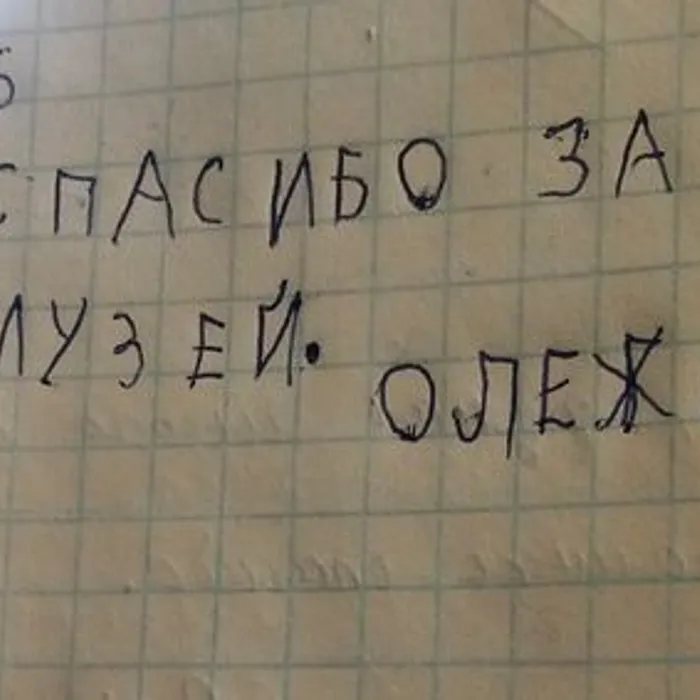 СПАСИБО ЗА
МУЗЕЙ. ОЛЕЖ